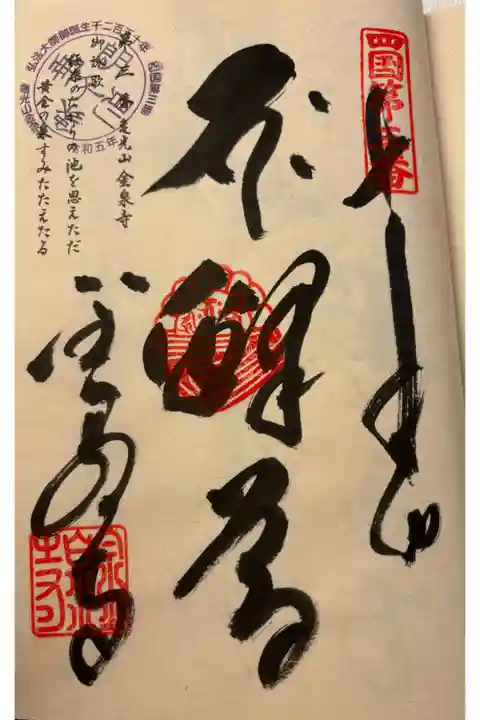 四国第三番
釈
金泉寺
第三番 亀光山 金泉寺
御詠歌
極楽のたからの池を思えただ
黄金の泉すみたたえたる
弘法大師御誕生千二百五十年
四国第三番
令和五年
亀光山金泉寺
金泉寺